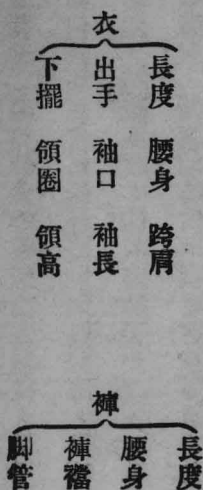 衣
長度　腰身　跨肩
出手　袖口　袖長
下擺　領圈　領高
褲
長度
腰身
褲襠
脚管